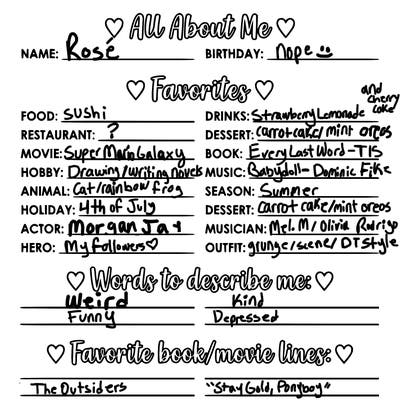 All About Me
NAME: Rosé BIRTHDAY: nope
Favorites
FOOD: sushi DRINKS: Strawberry Lemonade and cherry coke
RESTAURANT: ? DESSERT: carrot cake/mint oreos
MOVIE: Super Mario Galaxy BOOK: Every Last Word-TIS
HOBBY: Drawing/writing novels MUSIC: Babydoll-Dominic Fike
ANIMAL: Cat/rainbow frog SEASON: Summer
HOLIDAY: 4th of July DESSERT: carrot cake/mint oreos
ACTOR: Morgan Jay MUSICIAN: Mel. M/Olivia Rodrigo
HERO: My followers OUTFIT: grunge/scene/DTstyle
Words to describe me:
Weird Kind
Funny Depressed
Favorite book/movie lines:
The Outsiders "Stay Gold, Ponyboy"